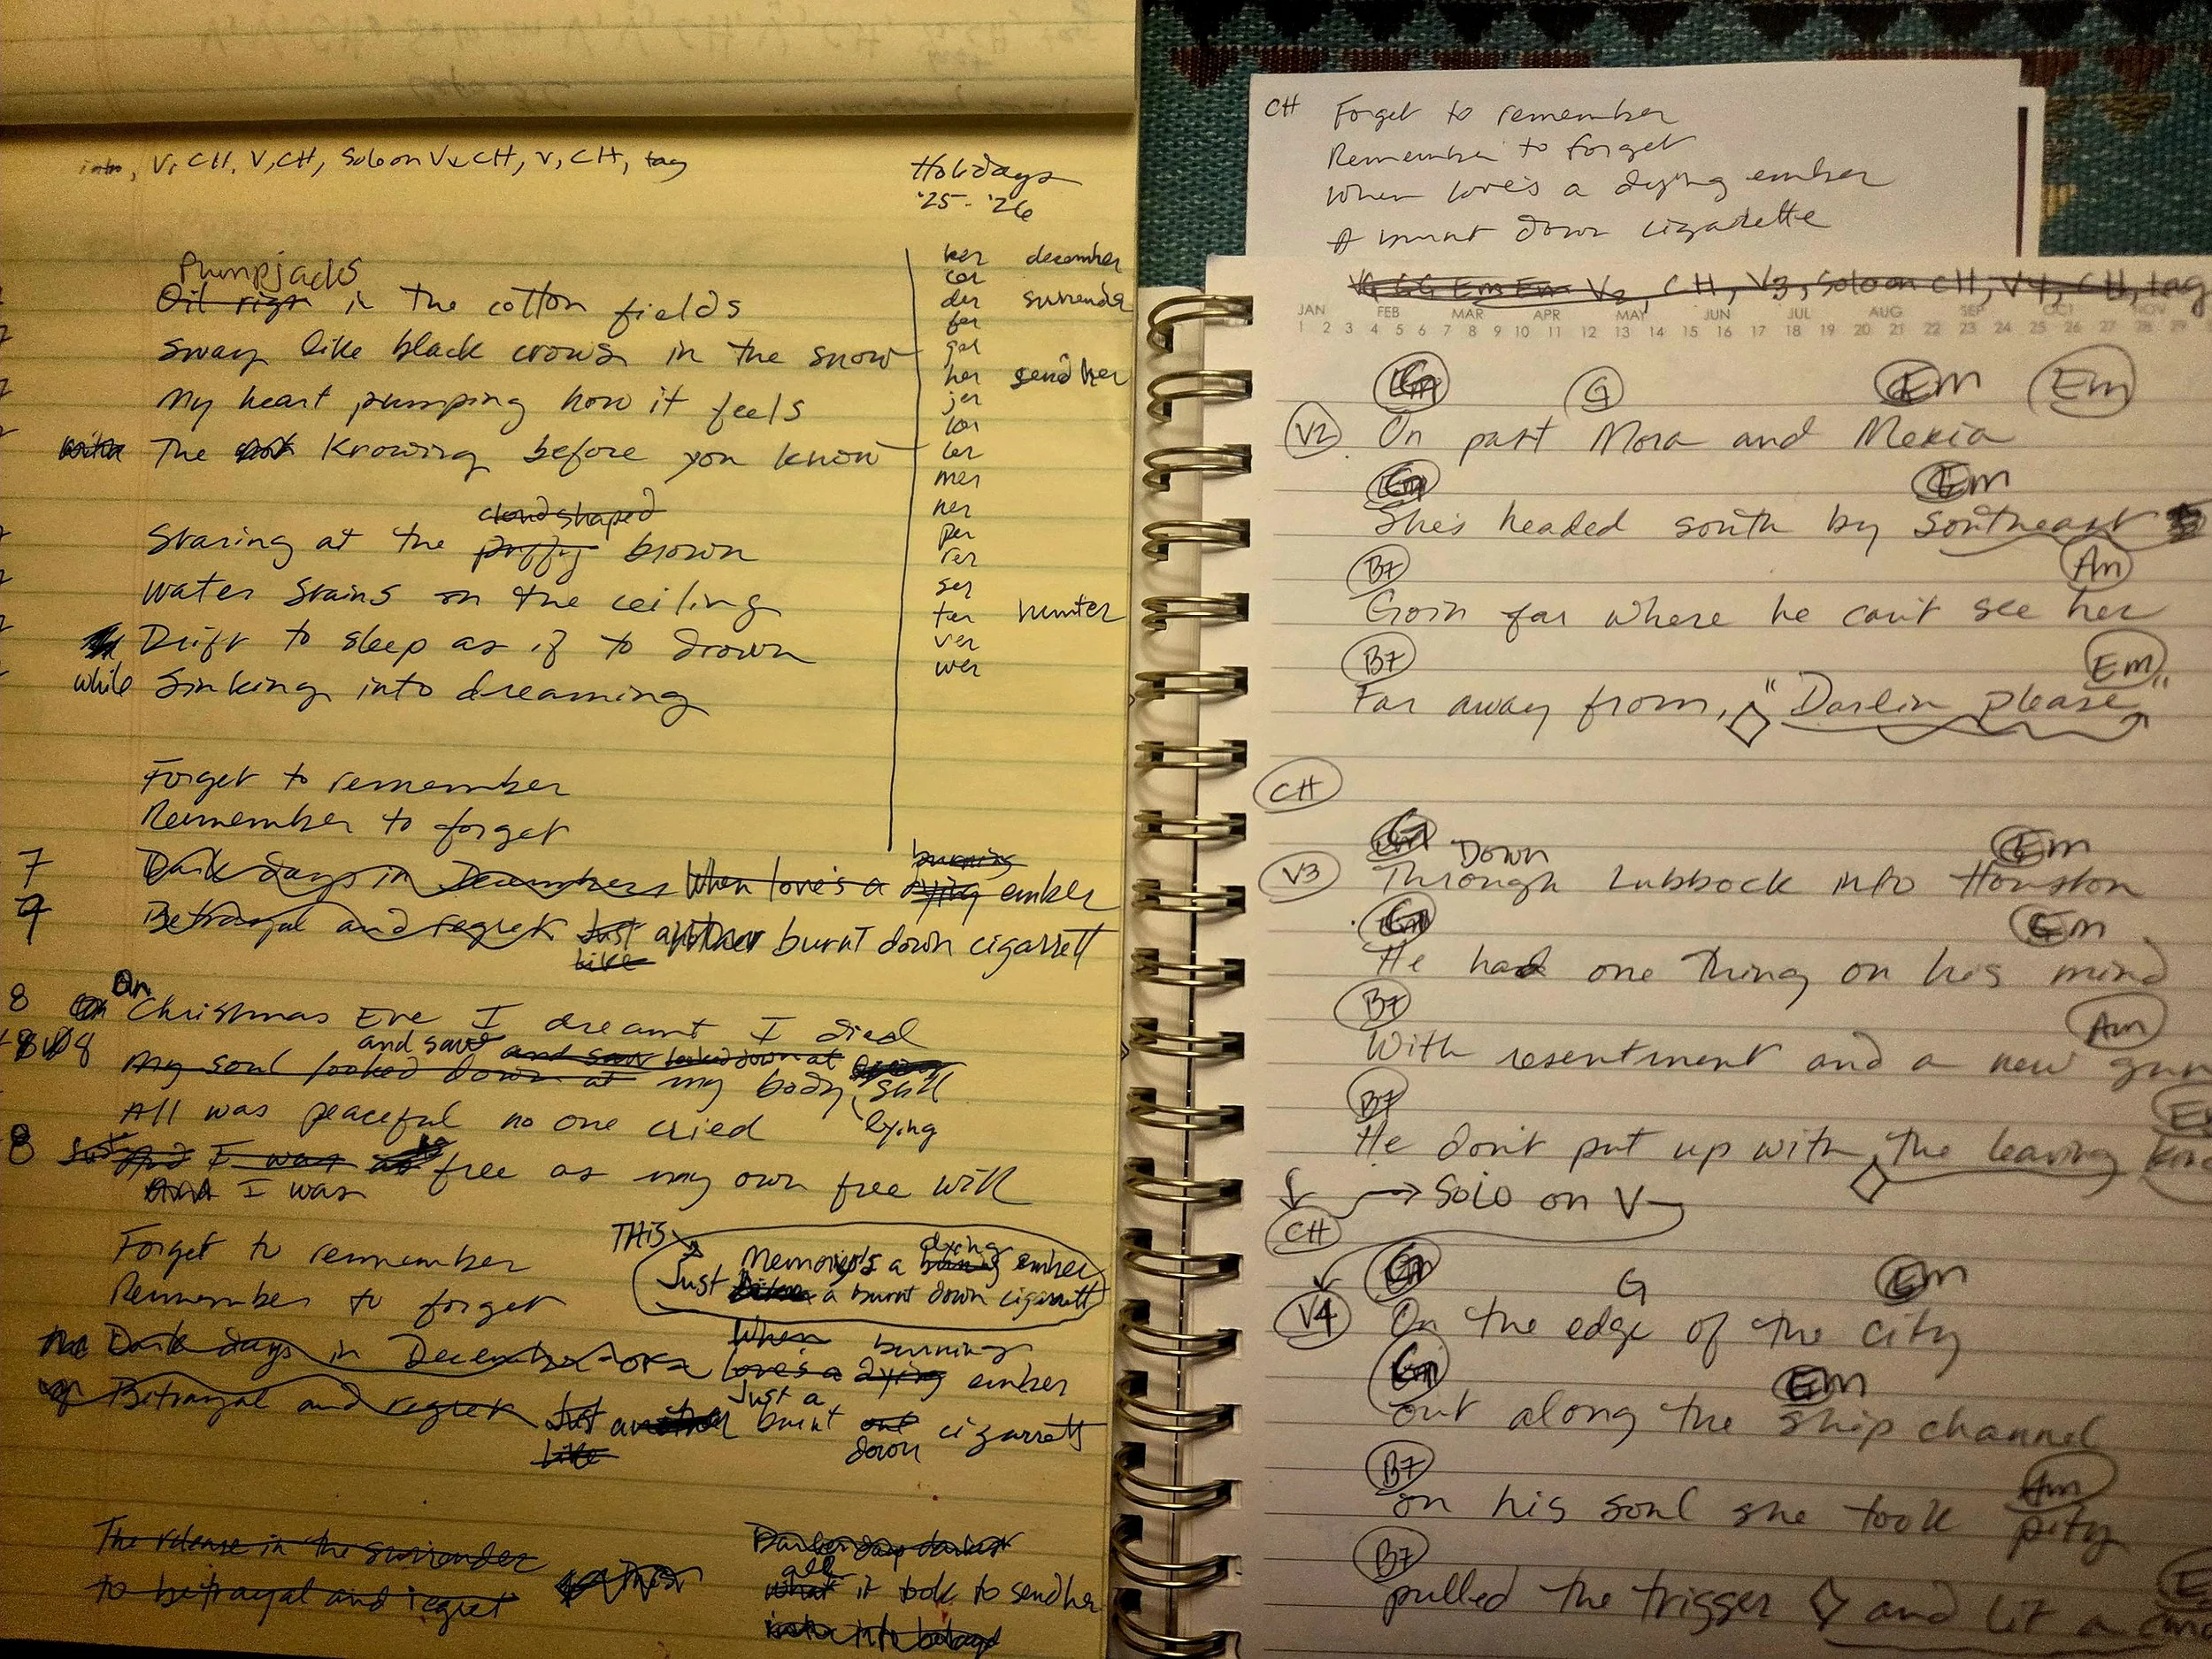 intro, V, CH, V, CH, Solo on V + CH, V, CH, tag
Holidays
'25 - '26
Pumpjacks
Oil rigs in the cotton fields
Sway like black crows in the snow
My heart pumping how it feels
The knowing before you know
cloud shaped
Staring at the puffy brown
Water stains on the ceiling
Drift to sleep as if to drown
while Sinking into dreaming
ker december
cer
der surrender
fer
ger
her send her
jer
ler
mer
ner
per
rer
ser
ter hunter
ver
wer
Forget to remember
Remember to forget
burning
7 Dark days in Decembers When love's a dying ember
9 Betrayal and regret Just another burnt down cigarrett
Like
On
8 Christmas Eve I dreamt I died
and saw and saw looked down at
8 My soul looked down at my body, still
All was peaceful no one cried lying
8 And I was free as my own free will
And I was
Forget to remember
Remember to forget
THIS
dying
Memory's a burning ember
Just a burnt down cigarrett
When burning
Dark days in December love's a dying ember
Just a
Betrayal and regret Just another burnt out cigarrett
Like down
The release in the surrender
to betrayal and regret
all
what it took to send her
CH Forget to remember
Remember to forget
When love's a dying ember
A burnt down cigarette
V2, CH, V3, Solo on CH, V4, CH, tag
JAN FEB MAR APR MAY JUN JUL AUG SEP OCT NOV
1 2 3 4 5 6 7 8 9 10 11 12 13 14 15 16 17 18 19 20 21 22 23 24 25 26 27 28 29
G G Em Em
V2 On past Mora and Mexia
G Em
She's headed south by southeast
B7 Am
Goin far where he can't see her
B7 Em
Far away from, "Darlin please"
CH
G Down Em
V3 Through Lubbock into Houston
G Em
He had one thing on his mind
B7 Am
With resentment and a new gun
B7
He don't put up with the leaving
Solo on V
CH
G G Em
V4 On the edge of the city
G Em
out along the ship channel
B7 Am
on his soul she took pity
B7
pulled the trigger and lit a